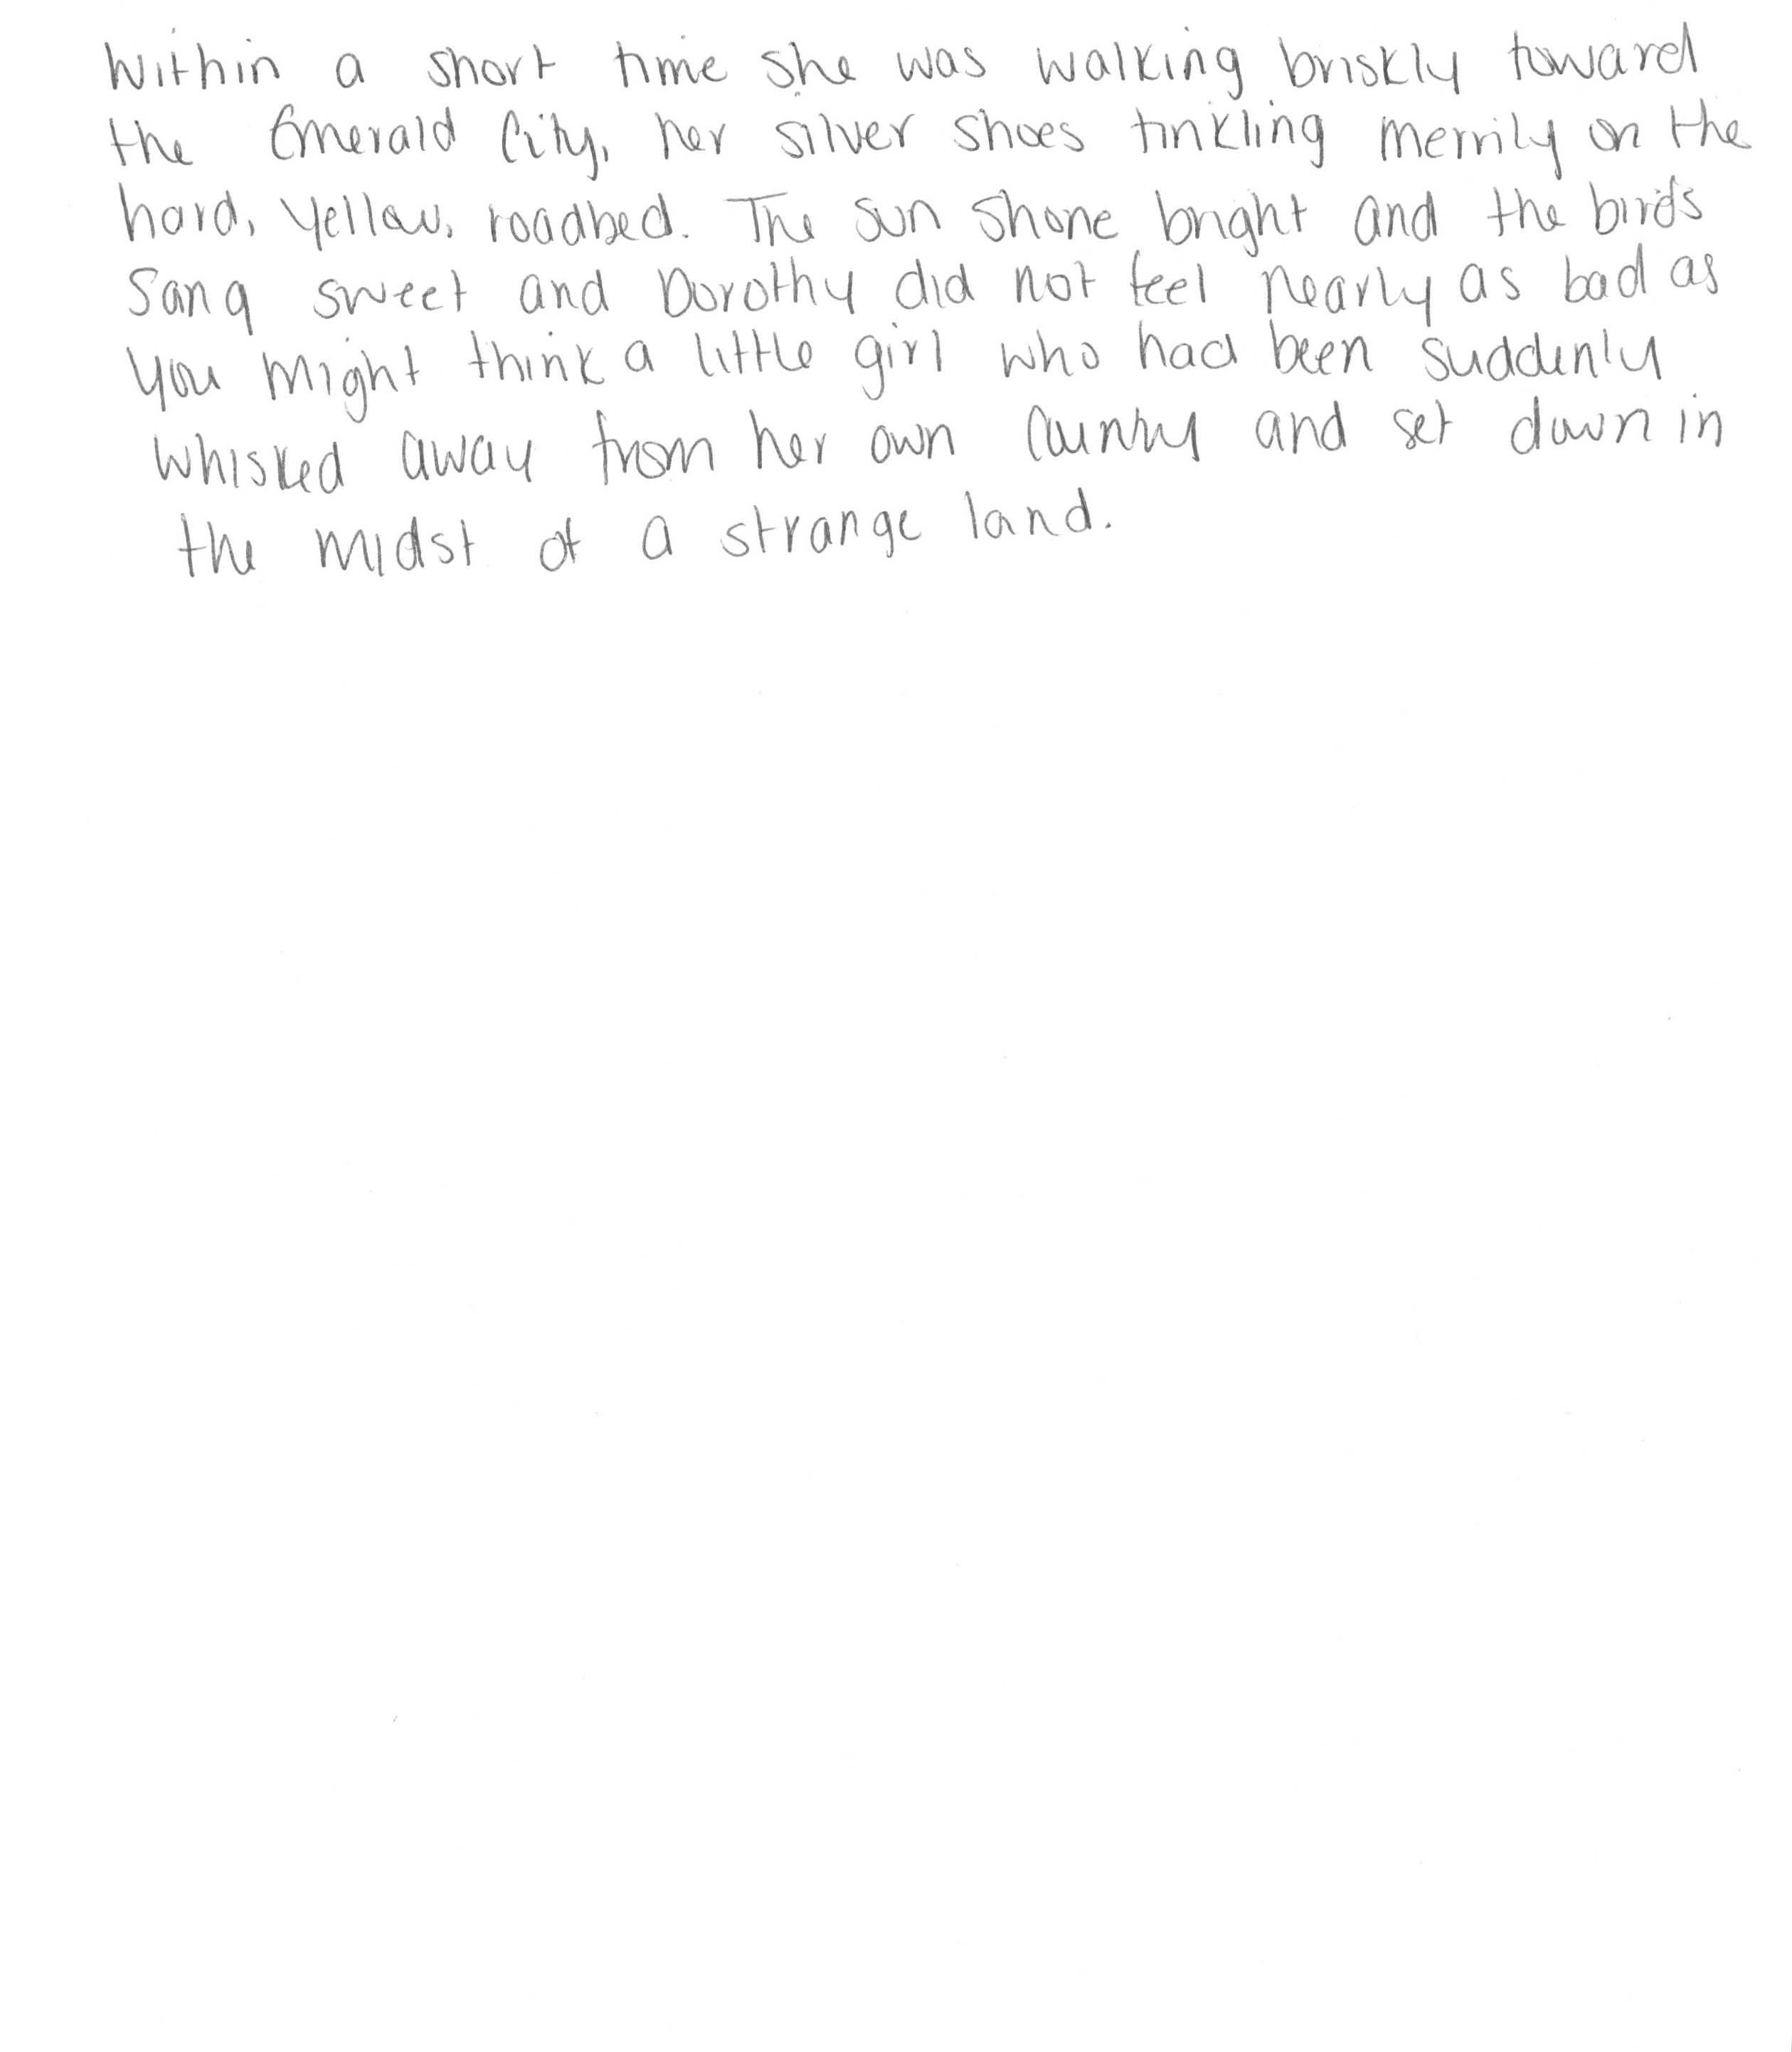 Within a short time she was walking briskly toward
the Emerald City, her silver shoes tinkling merrily on the
hard, yellow, roadbed. The sun shone bright and the birds
sang sweet and Dorothy did not feel nearly as bad as
you might think a little girl who had been suddenly
whisked away from her own country and set down in
the midst of a strange land.